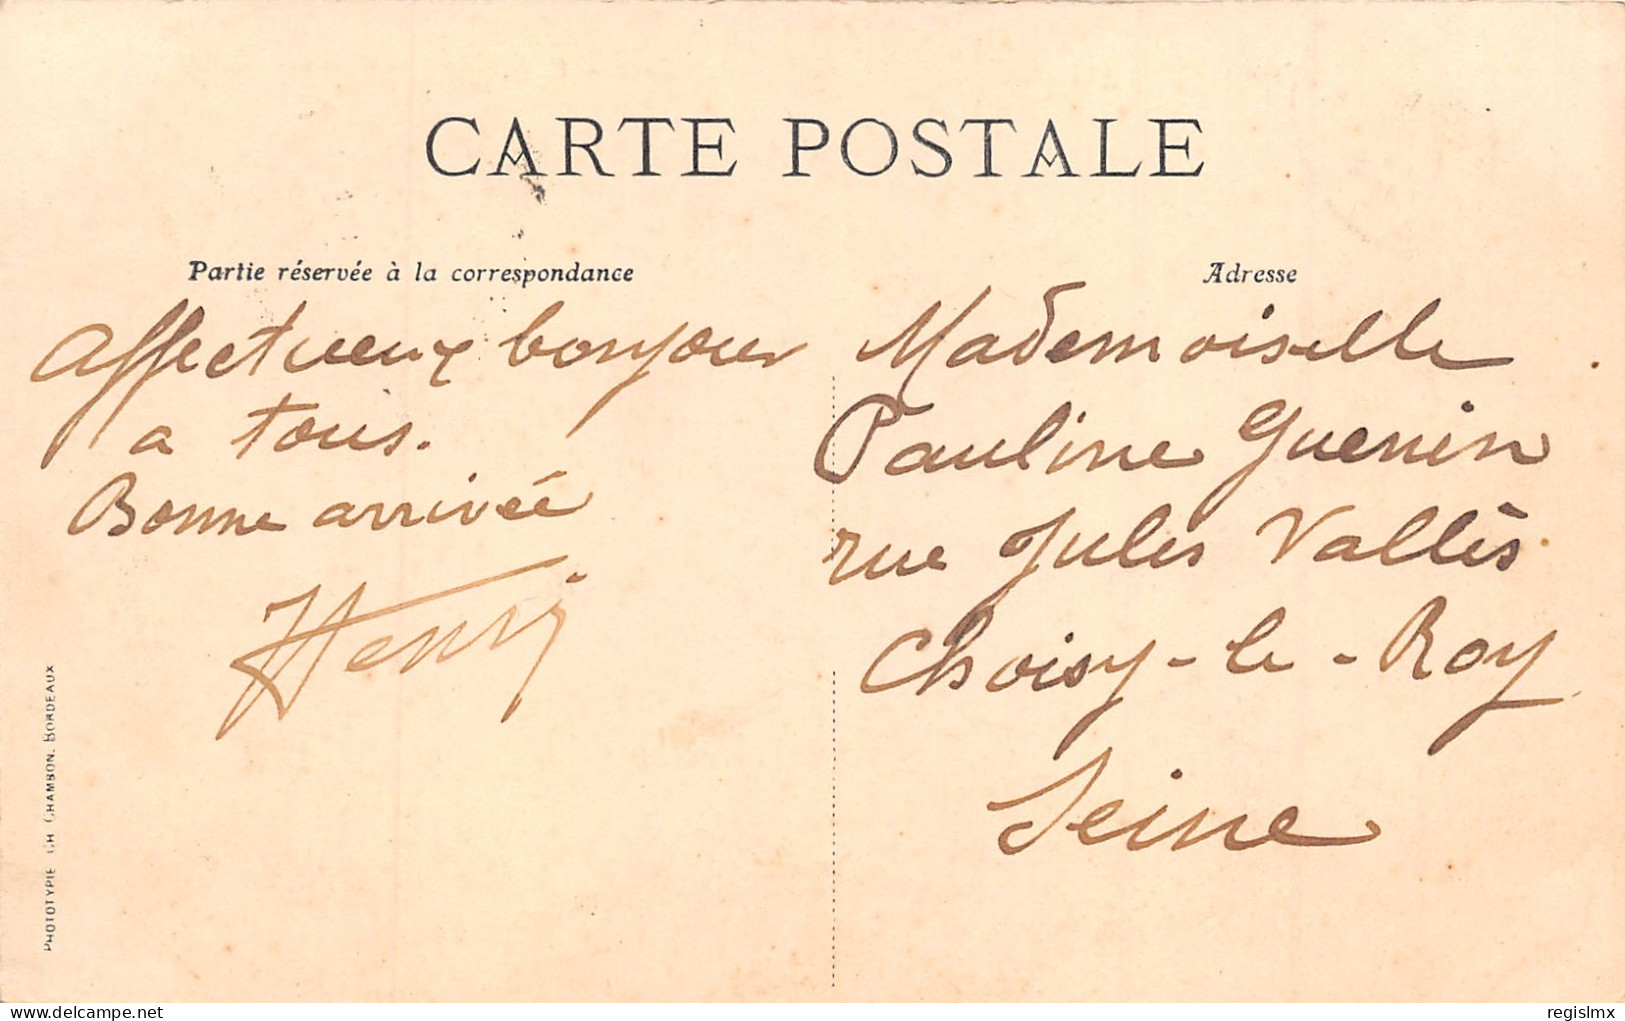 CARTE POSTALE
Partie réservée à la correspondance
Affectueux bonjour
a tous.
Bonne arrivée
Henri
Adresse
Mademoiselle
Pauline Guenin
rue Jules Vallès
Choisy-le-Roy
Seine
PHOTOTYPIE CH CHAMBON, BORDEAUX
delcampe.net
regislmx